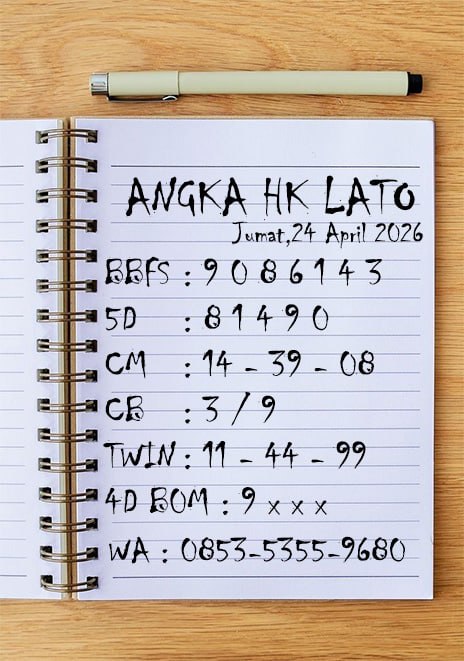 ANGKA HK LATO
Jumat,24 April 2026
BBFS : 9 0 8 6 1 4 3
5D : 8 1 4 9 0
CM : 14 - 39 - 08
CB : 3 / 9
TWIN : 11 - 44 - 99
4D BOM : 9 x x x
WA : 0853-5355-9680